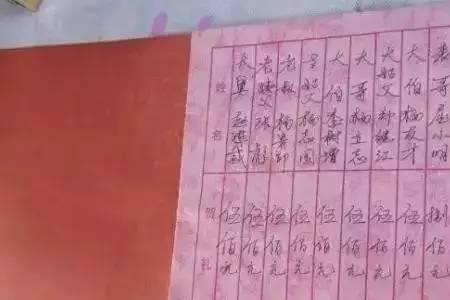 表哥屈小明
捌佰元
大伯杨友才
伍佰元
大姑父郑继江
伍佰元
大哥杨立志
伍佰元
大伯李树增
伍佰元
姑父杨志国
伍佰元
老叔杨
伍佰元
老姨父张彪
伍佰元
大舅赵
伍佰元
姓名
贺礼